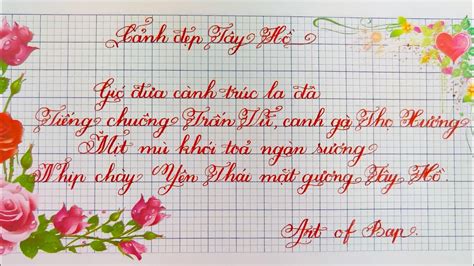 Cảnh đẹp Tây Hồ
Gió đưa cành trúc la đà
Tiếng chuông Trấn Vũ, canh gà Thọ Xương
Mịt mù khói toả ngàn sương
Nhịp chày Yên Thái mặt gương Tây Hồ.
Art of Bap.